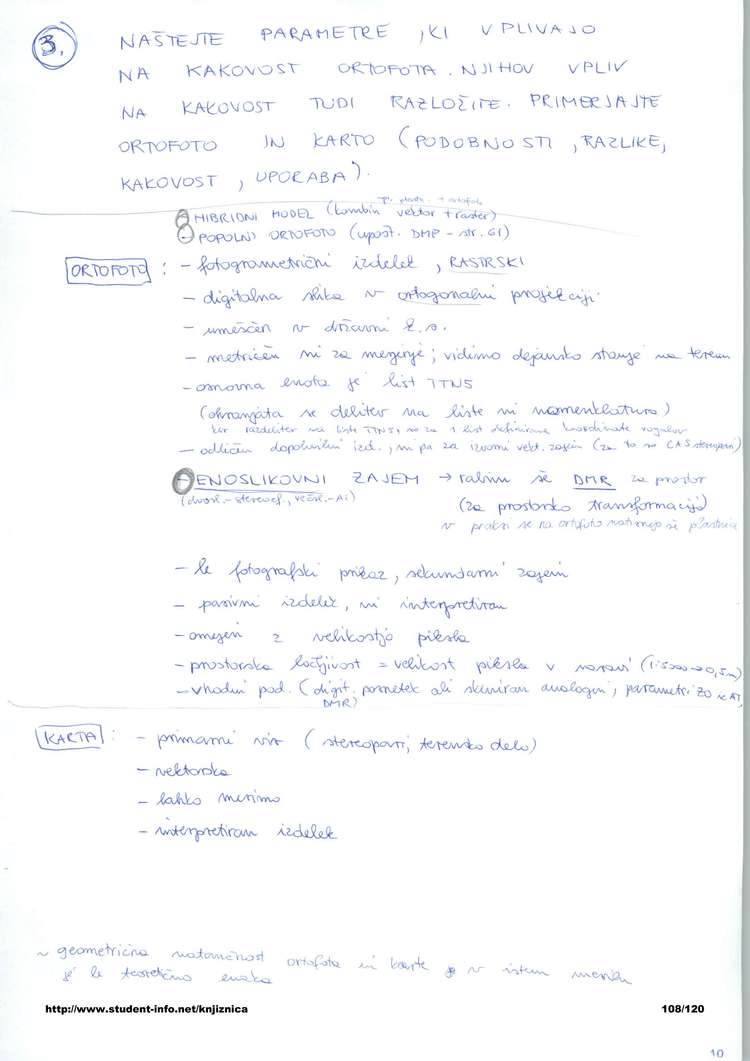 3. NAŠTEJTE PARAMETRE, KI VPLIVAJO
NA KAKOVOST ORTOFOTA. NJIHOV VPLIV
NA KAKOVOST TUDI RAZLOŽITE. PRIMERJAJTE
ORTOFOTO IN KARTO (PODOBNOSTI, RAZLIKE,
KAKOVOST, UPORABA).
HIBRIDNI MODEL (kombin vektor + raster)
POPOLNI ORTOFOTO (upošt. DMP - str. 61)
ORTOFOTO: - fotogrametrični izdelek, RASTRSKI
- digitalna slika v ortogonalni projekciji
- umeščen v državni k.s.
- metričen ni za merjenje; vidimo dejansko stanje na terenu
- osnovna enota je list TTN5
(ohranjata se delitev na liste in nomenklatura)
ker razdelitev na liste TTN5, so za 1 list definirane koordinate vogalov
- odličen dopolnilni izd., ni pa za izvorni vekt. zajem (za to so CAS stereopari)
- ENOSLIKOVNI ZAJEM → rabim še DMR za prostor
(dvosl. - stereoef., večsl. - AT) (za prostorsko transformacijo)
v praksi se na ortofoto natisnejo še plastnice
- le fotografski prikaz, sekundarni zajem
- pasivni izdelek, ni interpretiran
- omejen z velikostjo piksla
- prostorska ločljivost = velikost piksla v naravi (1:5000 → 0,5m)
- vhodni pod. (digit. posnetek ali skeniran analogni, parametri ZO iz AT,
DMR)
KARTA: - primarni vir (stereopari, terensko delo)
- vektorska
- lahko merimo
- interpretiran izdelek
~ geometrična natančnost ortofota in karte v istem merilu
je le teoretično enaka
http://www.student-info.net/knjiznica 108/120
10